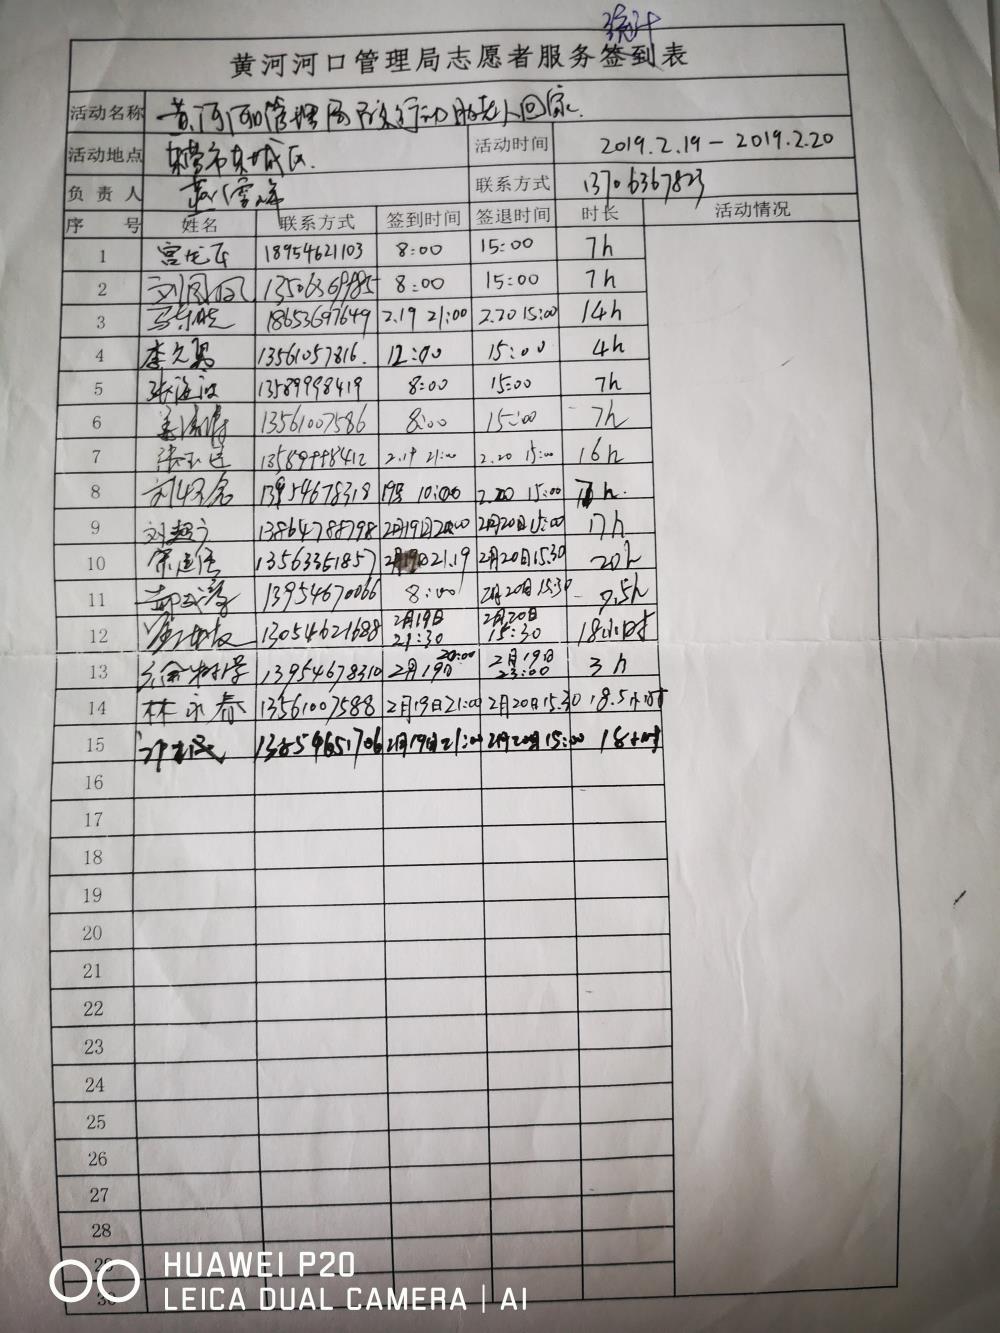 统计
黄河河口管理局志愿者服务签到表
活动名称 黄河河口管理局 行动 老人回家
活动地点 东营市东城区. 活动时间 2019.2.19－2019.2.20
负责人 联系方式 13706367823
序号 姓名 联系方式 签到时间 签退时间 时长 活动情况
1 18954621103 8:00 15:00 7h
2 刘 13506369985 8:00 15:00 7h
3 18653697649 2.19 21:00 2.20 15:00 14h
4 李 13561057816. 12:00 15:00 4h
5 张海波 13589998419 8:00 15:00 7h
6 姜 13561007586 8:00 15:00 7h
7 张 13589998412 2.19 21:00 2.20 15:00 16h
8 刘 13954678318 19号 10:00 2.20 15:00
9 刘超 13864788798 2月19日 2月20日15:00 17h
10 宋建 13563351857 21.19 2月20日15.30 20h
11 13954670066 8:00 2月20日15:30 7.5h
12 13054621688 2月19日 21:30 2月20日 15:30 18小时
13 徐树 13954678310 2月19日 20:00 2月19日 23:00 3h
14 林永春 13561007588 2月19日21:00 2月20日15.30 18.5小时
15 许 13854651706 2月19日21:00 2月20日15:00 18小时
16
17
18
19
20
21
22
23
24
25
26
27
28
29
30
HUAWEI P20
LEICA DUAL CAMERA | AI